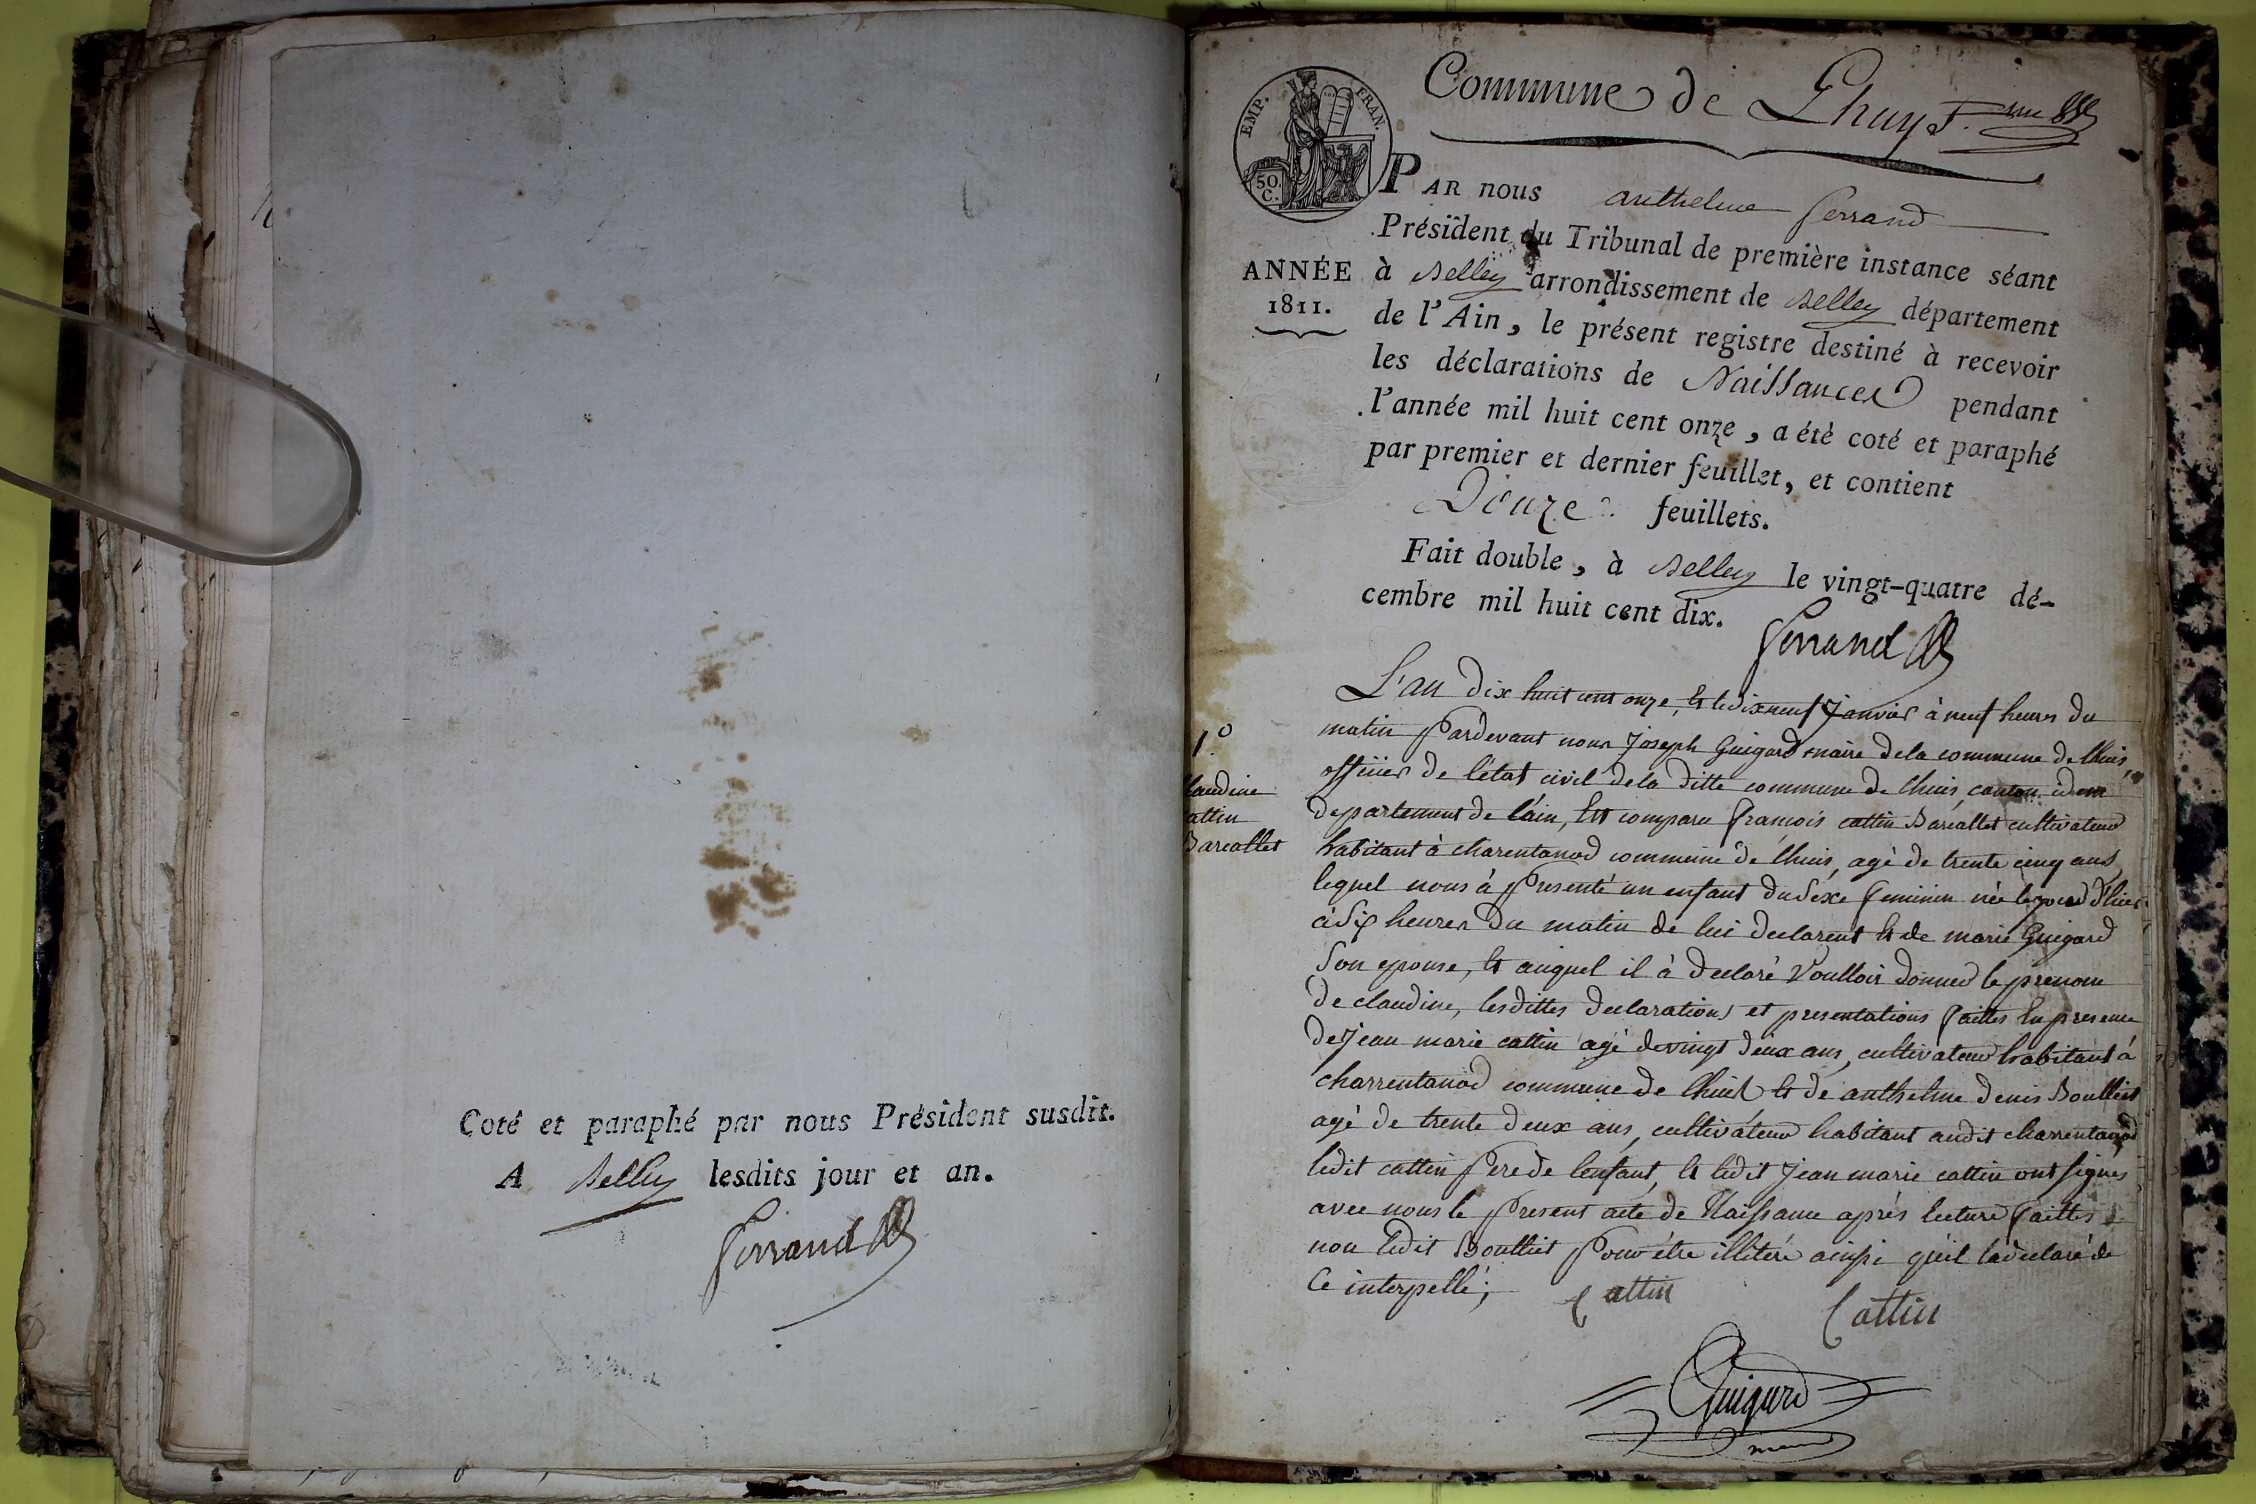 Coté et paraphé par nous Président susdit.
A Belley lesdits jour et an.
Ferrand
Commune de Lhuys.
EMP. FRAN.
50. C.
PAR nous anthelme ferrand
Président du Tribunal de première instance séant
ANNÉE
1811.
à Belley arrondissement de Belley département
de l'Ain, le présent registre destiné à recevoir
les déclarations de Naissances pendant
l'année mil huit cent onze, a été coté et paraphé
par premier et dernier feuillet, et contient
Douze feuillets.
Fait double, à Belley le vingt-quatre dé-
cembre mil huit cent dix.
Ferrand
1.º
laudine
attin
Barcallet
L'an dix huit cent onze, et le dixneuf Janvier à neuf heures du
matin Pardevant nous Joseph Guigard maire de la commune de lhuis,
officier de l'état civil de la ditte commune de lhuis, canton idem
departement de l'ain, Est comparu francois cattin Barcallet cultivateur
habitant à charentanod commune de lhuis, agé de trente cinq ans
lequel nous à Presenté un enfant du Sexe feminin née le jour d'hier
à Six heures du matin de lui declarent et de marie Guigard
Son epouse, et auquel il à declaré Voulloir donner le prenom
de claudine, lesdittes declarations et presentations faittes En presence
de Jean marie cattin agé de vingt deux ans, cultivateur habitant à
charrentanod commune de lhuis et de anthelme denis Boulliet
agé de trente deux ans, cultivateur habitant audit charrentanod
ledit cattin Pere de lenfant, et ledit Jean marie cattin ont signés
avec nous le Present acte de Naissance après lecture faittes
non ledit Boulliet Pour étre illiteré ainsi qu'il l'a declaré de
Ce interpellé;
Cattin
Cattin
Guigard